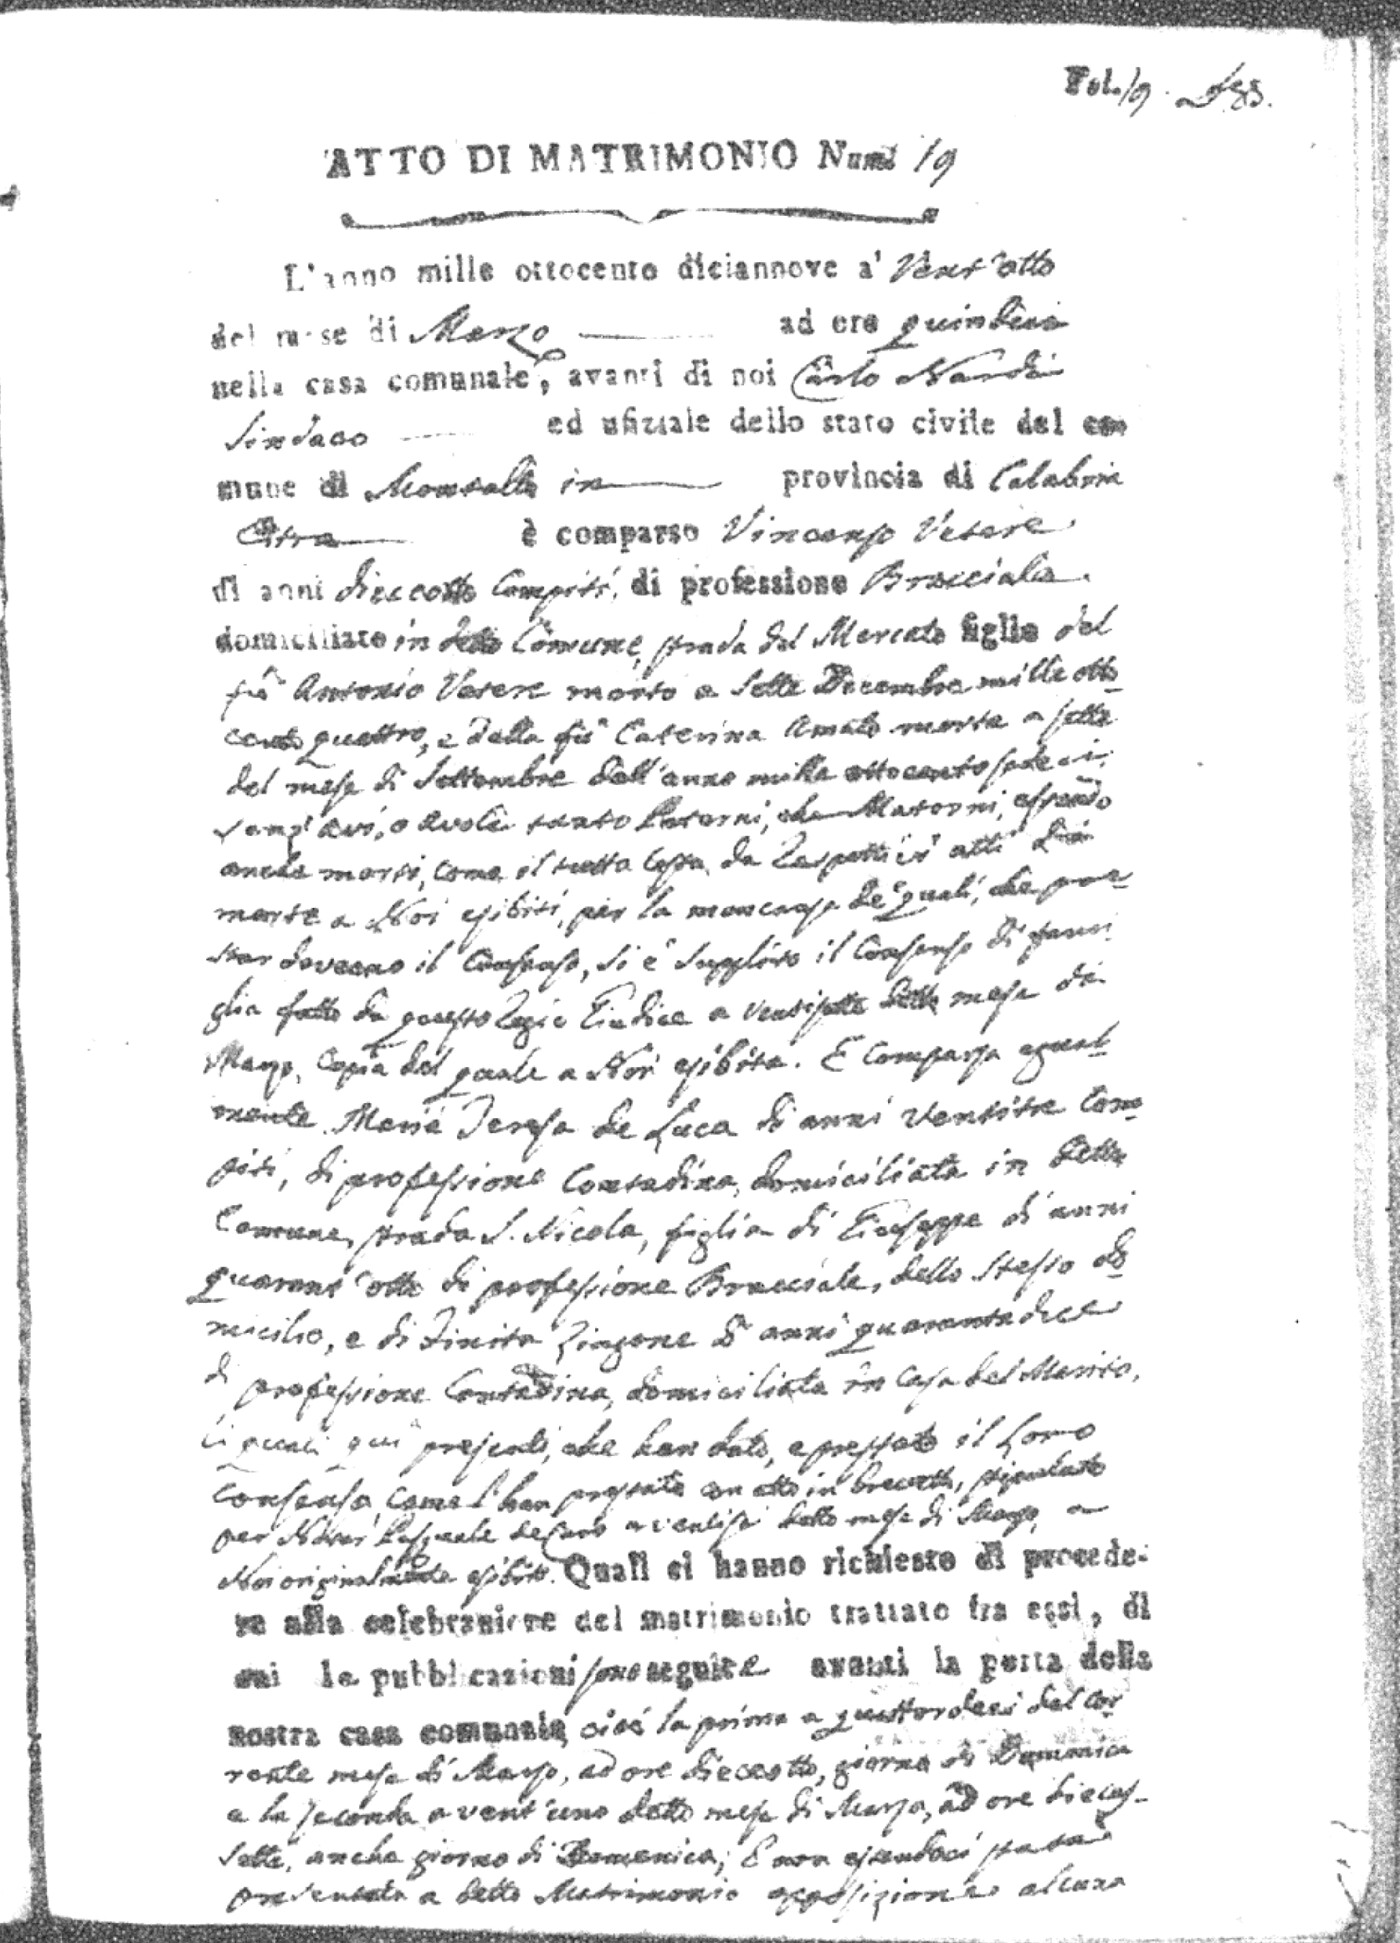 Fol. 19.
ATTO DI MATRIMONIO Num. 19
L'anno mille ottocento diciannove a' Vent'otto
del mese di Marzo ad ore quindici
nella casa comunale, avanti di noi Carlo Nardi
Sindaco ed ufiziale dello stato civile del co-
mune di Montalto in provincia di Calabria
Citra è comparso Vincenzo Vetere
di anni dieciotto Compiti, di professione Bracciale
domiciliato in detto Comune, strada del Mercato figlio del
fù Antonio Vetere morto a sette Decembre mille otto
cento quattro, e della fù Caterina Amato morta a sette
del mese di Settembre dell'anno mille ottocento sedeci,
senz'avi, o avole tanto Paterni, che Materni, essendo
anche morti, come il tutto costa da rispettivi atti di
morte a Noi esibiti, per la mancanza de' quali, che pre-
star doveano il Consenso, si è supplito il Consenso di fami
glia fatto da questo Regio Giudice a ventisette detto mese di
Marzo, Copia del quale a Noi esibita. E Comparsa egual-
mente Maria Teresa de Luca di anni ventitre Com-
piti, di professione Contadina, domiciliata in detto
Comune, strada S. Nicola, figlia di Giuseppe di anni
quarant'otto di professione Bracciale, dello stesso do
micilio, e di Zingone di anni quarantadice
di professione Contadina, domiciliata in Casa del Marito,
li quali qui presenti, che han dato, e prestato il loro
Consenso, come l'han prestato con atto in brevetto, stipulato
per Notar Pasquale de Caro a ventisei detto mese di Marzo, a
Noi originalmente esibito. Quali ci hanno richiesto di procede-
re alla celebrazione del matrimonio trattato fra essi, di
cui le pubblicazioni sono seguite avanti la porta della
nostra casa comunale cioè la prima a quattordeci del cor
rente mese di Marzo, ad ore dieceotto, giorno di Dommica
e la seconda a vent'uno detto mese di Marzo, ad ore dieces-
sette, anche giorno di Domenica; E non essendoci stata
presentata a detto Matrimonio opposizione alcuna